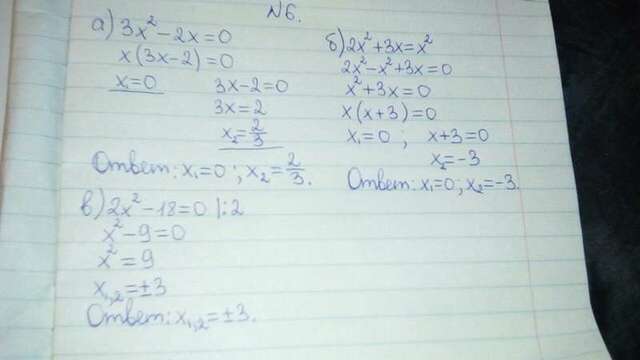 №6.
а) 3x² - 2x = 0
x(3x-2) = 0
x₁=0 3x-2=0
3x=2
x₂=2/3
Ответ: x₁=0; x₂=2/3.
б) 2x² + 3x = x²
2x² - x² + 3x = 0
x² + 3x = 0
x(x+3) = 0
x₁=0; x+3=0
x₂=-3
Ответ: x₁=0; x₂=-3.
в) 2x² - 18 = 0 |:2
x² - 9 = 0
x² = 9
x₁,₂ = ±3
Ответ: x₁,₂ = ±3.